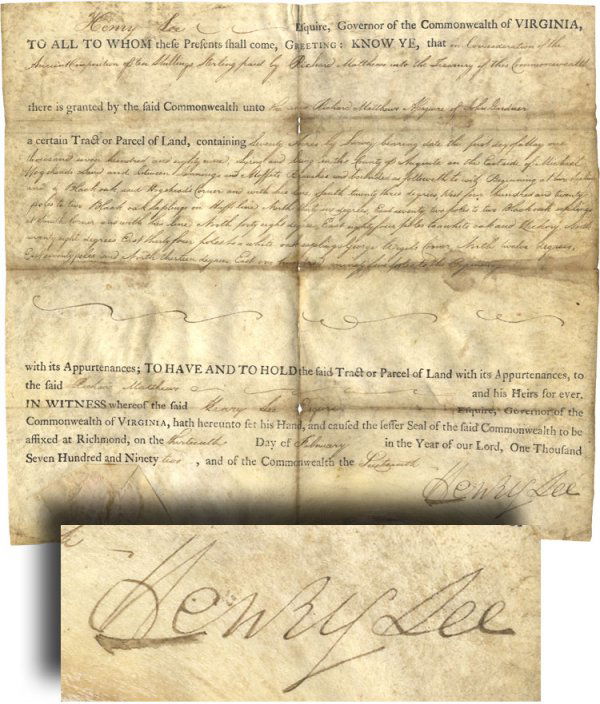 Henry Lee Esquire, Governor of the Commonwealth of VIRGINIA,
TO ALL TO WHOM these Presents shall come, GREETING: KNOW YE, that in Consideration of the
Ancient Composition of Ten Shillings Sterling paid by Richard Matthews into the Treasury of this Commonwealth
there is granted by the said Commonwealth unto the said Richard Matthews Assignee of John Gardner
a certain Tract or Parcel of Land, containing Seventy Acres by Survey bearing date the first day of May one
thousand seven hundred and eighty nine, lying and being in the County of Augusta on the East side of Michael
Hogsheads land and between and Moffetts and bounded as followeth to wit Beginning at two
and a Black oak and Hogsheads Corner and with his line South twenty three degrees West four hundred and twenty
poles to two Black oak saplings on Moffetts line North thirty degrees, East seventy two poles to two Black oak saplings
at Corner and with his line North forty eight degrees, East eighty four poles to a white oak and Hickory North
degrees East thirty four poles to a white oak saplings George Wrights Corner North twelve degrees,
East seventy poles and North thirteen degrees East one hundred and poles to the Beginning
with its Appurtenances; TO HAVE AND TO HOLD the said Tract or Parcel of Land with its Appurtenances, to
the said Richard Matthews and his Heirs for ever.
IN WITNESS whereof the said Henry Lee Esquire Esquire, Governor of the
Commonwealth of VIRGINIA, hath hereunto set his Hand, and caused the lesser Seal of the said Commonwealth to be
affixed at Richmond, on the thirteenth Day of February in the Year of our Lord, One Thousand
Seven Hundred and Ninety two, and of the Commonwealth the Sixteenth
Henry Lee
Henry Lee